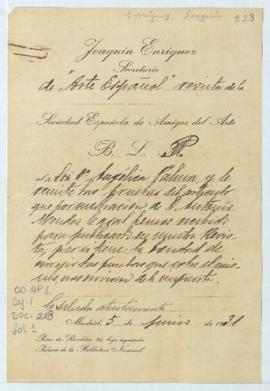 Enríquez, Joaquín 233
Joaquín Enríquez
Secretario
de "Arte Español" revista de la
Sociedad Española de Amigos del Arte
B. L. M.
a la Sta. Dª Angélica Palma y le
remite las pruebas del artículo
que por mediación de D. Antonio
Méndez Casal hemos recibido
para publicarlo en nuestra Revis-
ta, por si tiene la bondad de
corregir las pruebas que
nos envían de la imprenta.
Le saluda atentamente
Madrid, 5 de junio de 1931
Paseo de Recoletos, 20, bajo izquierda
Palacio de la Biblioteca Nacional
CO-AP1
Caj-1
DOC-
fol. 1